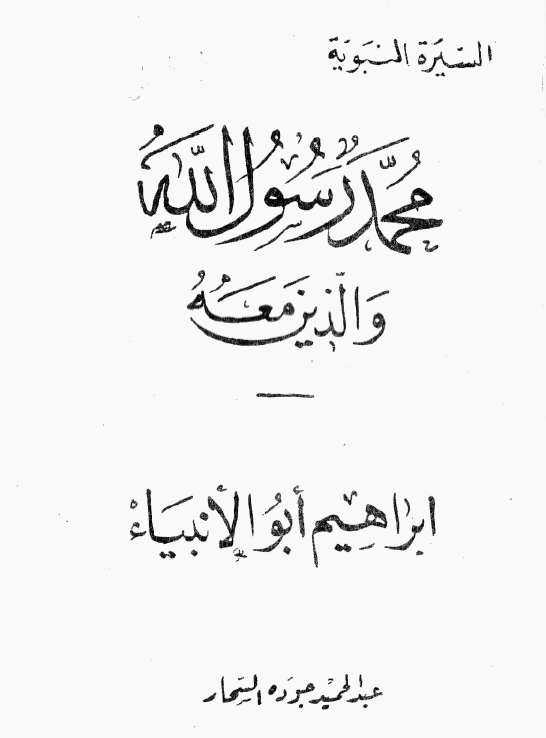 السّيرة النّبويّة
محمّد رسول الله
والّذين معه
ابراهيم أبو الأنبياء
عبد الحميد جوده السحّار